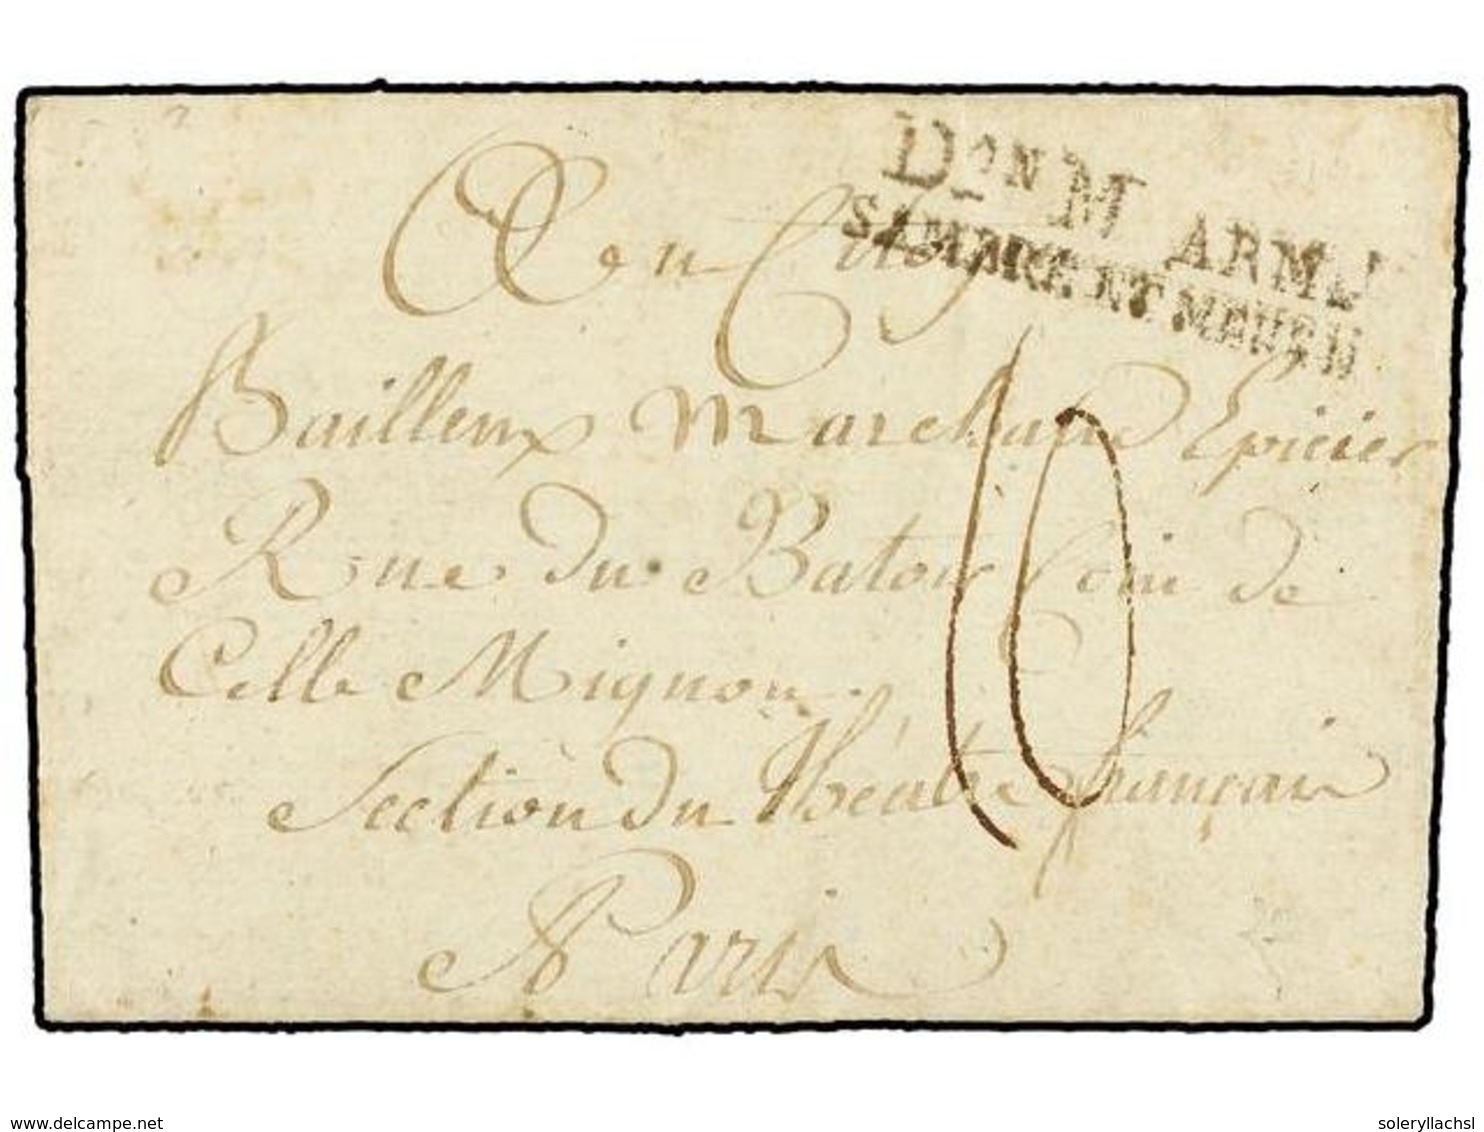 DON M ARMÉE
SAMBRE ET MEUSE
Au Citoy
Bailleux Marchand Epicier
10
Rue du Batoir Coin de
Celle Mignon
Section du théatre français
A Paris
delcampe.net
soleryllachsl